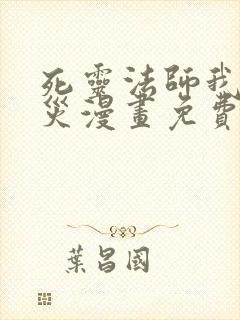 死靈法師我
災漫畫免費
葉昌國